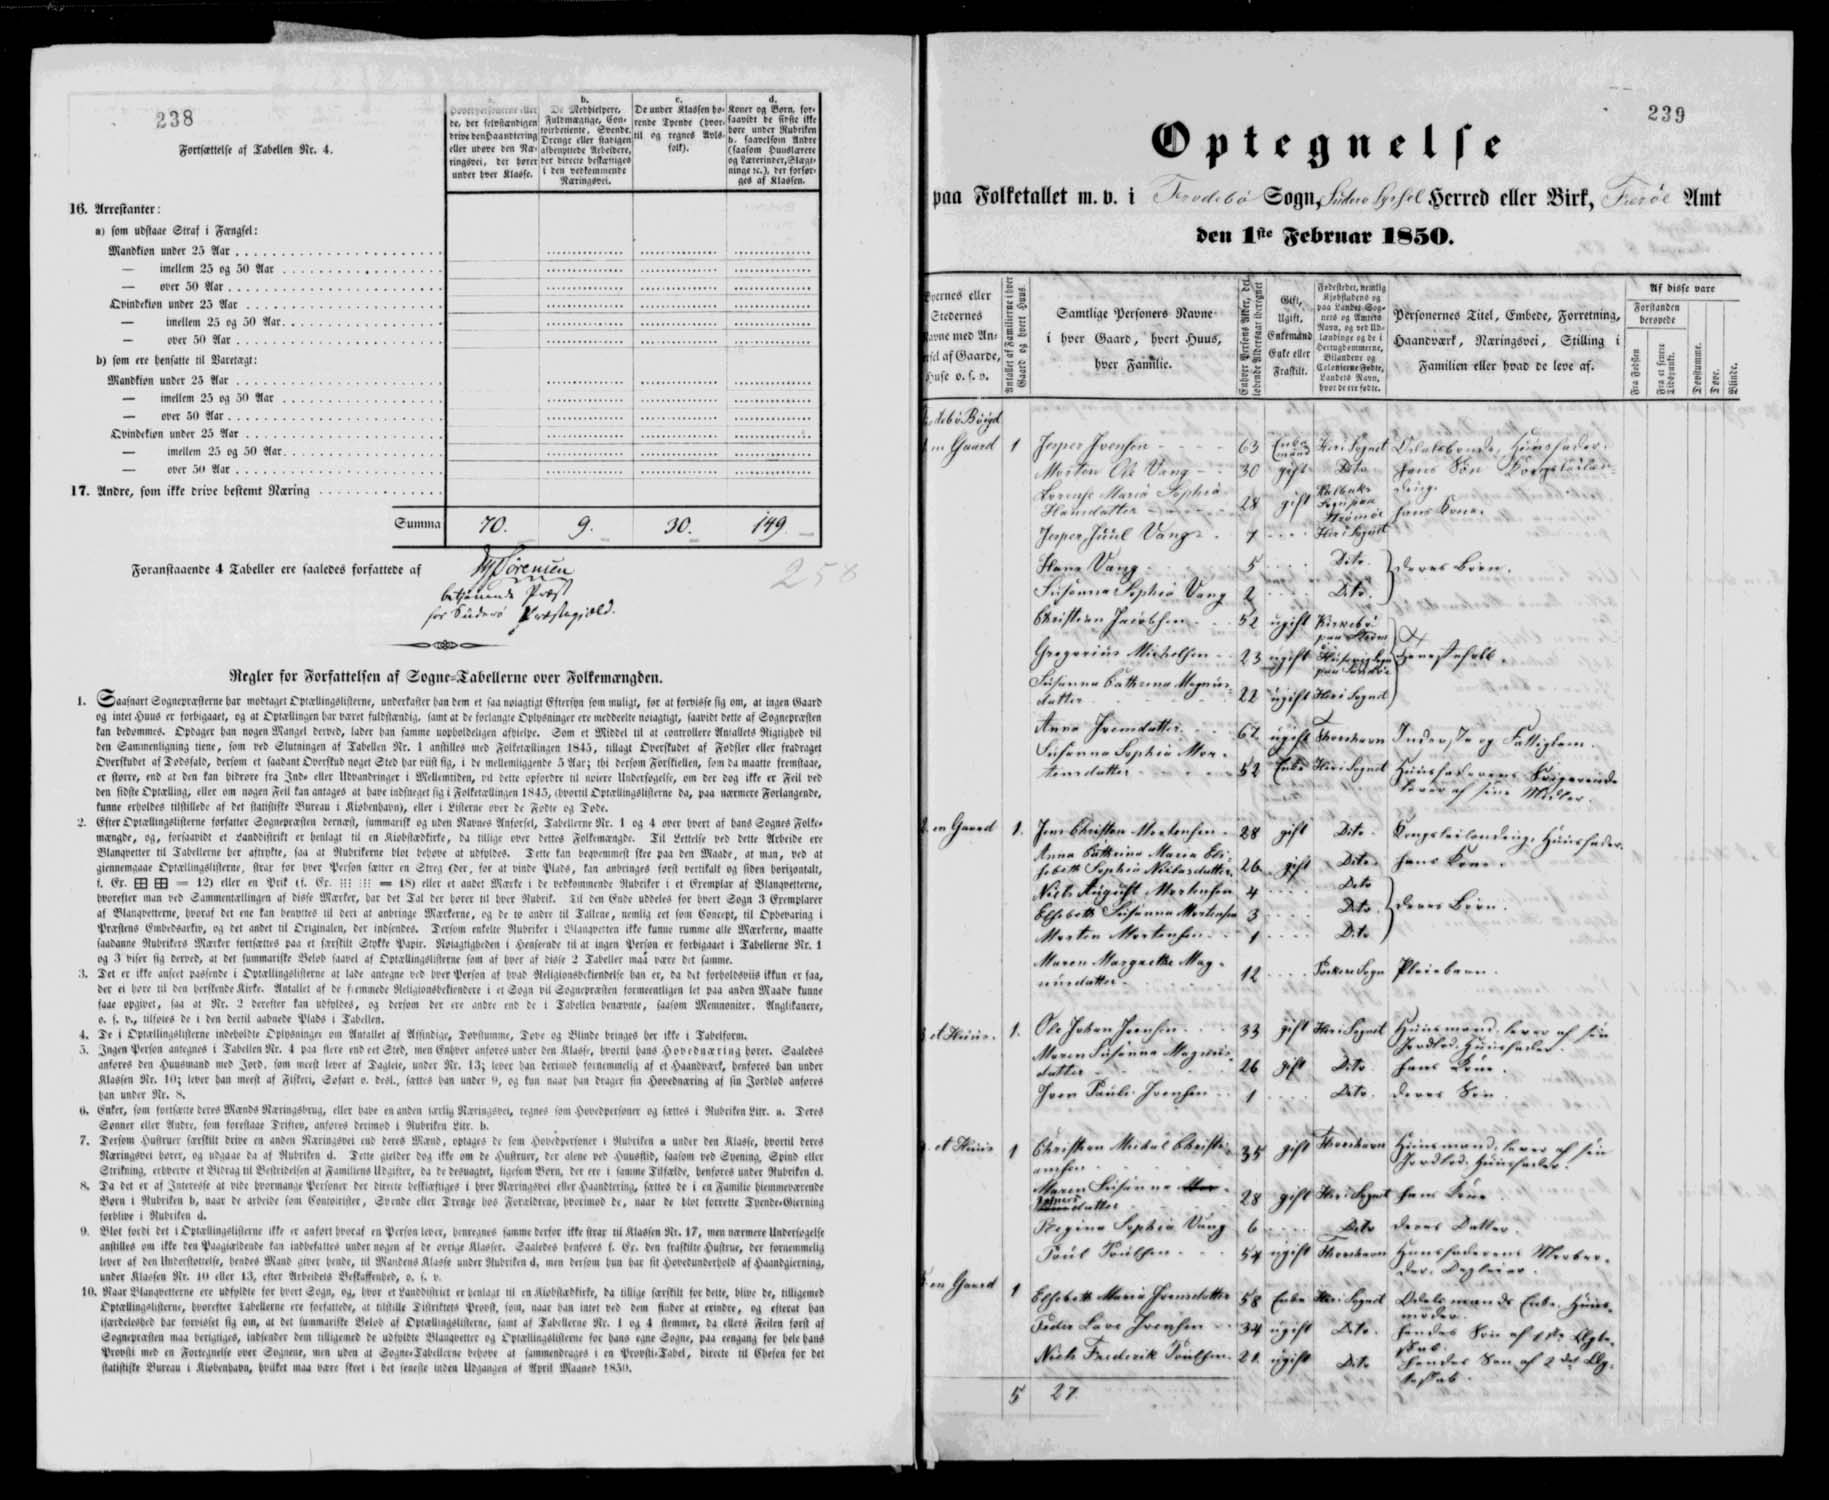 238
Fortsættelse af Tabellen Nr. 4.
de, der selvstændigen drive den Haandtering eller udøve den Næringsvei, der hører under hver Klasse.
b. De Medhielpere, Fuldmægtige, Contoirbetiente, Svende, Drenge eller stadigen afbenyttede Arbeidere, der directe beskæftiges i den vedkommende Næringsvei.
c. De under Klassen hørende Tyende (hvortil og regnes Avlsfolk).
d. Koner og Børn, forsaavidt de sidste ikke høre under Rubriken b. saavelsom Andre (saasom Huuslærere og Lærerinder, Slægtninge ꝛc.), der forsørges af Klassen.
16. Arrestanter:
a) som udstaae Straf i Fængsel:
Mandkiøn under 25 Aar
— imellem 25 og 50 Aar
— over 50 Aar
Qvindekiøn under 25 Aar
— imellem 25 og 50 Aar
— over 50 Aar
b) som ere hensatte til Varetægt:
Mandkiøn under 25 Aar
— imellem 25 og 50 Aar
— over 50 Aar
Qvindekiøn under 25 Aar
— imellem 25 og 50 Aar
— over 50 Aar
17. Andre, som ikke drive bestemt Næring
Summa 70. 9. 30. 149.
Foranstaaende 4 Tabeller ere saaledes forfattede af Sørensen
betjenende Præst
for Suderø Præstegjæld.
258
Regler for Forfattelsen af Sogne-Tabellerne over Folkemængden.
1. Saasnart Sognepræsterne har modtaget Optællingslisterne, underkaster han dem et saa nøiagtigt Eftersyn som muligt, for at forvisse sig om, at ingen Gaard
og intet Huus er forbigaaet, og at Optællingen har været fuldstændig, samt at de forlangte Oplysninger ere meddeelte nøiagtigt, saavidt dette af Sognepræsten
kan bedømmes. Opdager han nogen Mangel derved, lader han samme uopholdeligen afhielpe. Som et Middel til at controllere Antallets Rigtighed vil
den Sammenligning tiene, som ved Slutningen af Tabellen Nr. 1 anstilles med Folketællingen 1845, tillagt Overskudet af Fødsler eller fradraget
Overskudet af Dødsfald, dersom et saadant Overskud noget Sted har viist sig, i de mellemliggende 5 Aar; thi dersom Forskiellen, som da maatte fremstaae,
er større, end at den kan hidrøre fra Ind- eller Udvandringer i Mellemtiden, vil dette opfordre til nøiere Undersøgelse, om der dog ikke er Feil ved
den sidste Optælling, eller om nogen Feil kan antages at have indsneget sig i Folketællingen 1845, (hvortil Optællingslisterne da, paa nærmere Forlangende,
kunne erholdes tilstillede af det statistiske Bureau i Kiøbenhavn), eller i Listerne over de Fødte og Døde.
2. Efter Optællingslisterne forfatter Sognepræsten dernæst, summarisk og uden Navnes Anførsel, Tabellerne Nr. 1 og 4 over hvert af hans Sognes Folke-
mængde, og, forsaavidt et Landdistrikt er henlagt til en Kiøbstædkirke, da tillige over dettes Folkemængde. Til Lettelse ved dette Arbeide ere
Blanqvetter til Tabellerne her aftrykte, saa at Rubrikerne blot behøve at udfyldes. Dette kan beqvemmest skee paa den Maade, at man, ved at
giennemgaae Optællingslisterne, strax for hver Person sætter en Streg (der, for at vinde Plads, kan anbringes først vertikalt og siden horizontalt,
f. Ex. ⊞ ⊞ = 12) eller en Prik (f. Ex. ⁝⁝⁝ ⁝⁝⁝ = 18) eller et andet Mærke i de vedkommende Rubriker i et Exemplar af Blanqvetterne,
hvorefter man ved Sammentællingen af disse Mærker, har det Tal der hører til hver Rubrik. Til den Ende uddeles for hvert Sogn 3 Exemplarer
af Blanqvetterne, hvoraf det ene kan benyttes til deri at anbringe Mærkerne, og de to andre til Tallene, nemlig eet som Concept, til Opbevaring i
Præstens Embedsarkiv, og det andet til Originalen, der indsendes. Dersom enkelte Rubriker i Blanqvetten ikke kunne rumme alle Mærkerne, maatte
saadanne Rubrikers Mærker fortsættes paa et særskilt Stykke Papir. Nøiagtigheden i Henseende til at ingen Person er forbigaaet i Tabellerne Nr. 1
og 3 viser sig derved, at det summariske Beløb saavel af Optællingslisterne som af hver af disse 2 Tabeller maa være det samme.
3. Det er ikke anseet passende i Optællingslisterne at lade antegne ved hver Person af hvad Religionsbekiendelse han er, da det forholdsviis ikkun er faa,
der ei høre til den herskende Kirke. Antallet af de fremmede Religionsbekiendere i et Sogn vil Sognepræsten formeentligen let paa anden Maade kunne
faae opgivet, saa at Nr. 2 derefter kan udfyldes, og dersom der ere andre end de i Tabellen benævnte, saasom Mennoniter, Anglikanere,
o. s. v., tilføies de i den dertil aabnede Plads i Tabellen.
4. De i Optællingslisterne indeholdte Oplysninger om Antallet af Afsindige, Døvstumme, Døve og Blinde bringes her ikke i Tabelform.
5. Ingen Person antegnes i Tabellen Nr. 4 paa flere end eet Sted, men Enhver anføres under den Klasse, hvortil hans Hovednæring hører. Saaledes
anføres den Huusmand med Jord, som meest lever af Dagleie, under Nr. 13; lever han derimod fornemmelig af et Haandværk, henføres han under
Klassen Nr. 10; lever han meest af Fiskeri, Søfart o. desl., sættes han under 9, og kun naar han drager sin Hovednæring af sin Jordlod anføres
han under Nr. 8.
6. Enker, som fortsætte deres Mænds Næringsbrug, eller have en anden særlig Næringsvei, regnes som Hovedpersoner og sættes i Rubriken Litr. a. Deres
Sønner eller Andre, som forestaae Driften, anføres derimod i Rubriken Litr. b.
7. Dersom Hustruer særskilt drive en anden Næringsvei end deres Mænd, optages de som Hovedpersoner i Rubriken a under den Klasse, hvortil deres
Næringsvei hører, og udgaae da af Rubriken d. Dette gielder dog ikke om de Hustruer, der alene ved Huusflid, saasom ved Spening, Spind eller
Strikning, erhverve et Bidrag til Bestridelsen af Familiens Udgifter, da de desuagtet, ligesom Børn, der ere i samme Tilfælde, henføres under Rubriken d.
8. Da det er af Interesse at vide hvormange Personer der directe beskiæftiges i hver Næringsvei eller Haandtering, sættes de i en Familie hjemmeværende
Børn i Rubriken b, naar de arbeide som Contoirister, Svende eller Drenge hos Forældrene, hvorimod de, naar de blot forrette Tyende-Gierning
forblive i Rubriken d.
9. Blot fordi det i Optællingslisterne ikke er anført hvoraf en Person lever, henregnes samme derfor ikke strax til Klassen Nr. 17, men nærmere Undersøgelse
anstilles om ikke den Paagiældende kan indbefattes under nogen af de øvrige Klasser. Saaledes henføres f. Ex. den fraskilte Hustrue, der fornemmelig
lever af den Understøttelse, hendes Mand giver hende, til Mandens Klasse under Rubriken d, men dersom hun har sit Hovedunderhold af Haandgierning,
under Klassen Nr. 10 eller 13, efter Arbeidets Beskaffenhed, o. s. v.
10. Naar Blanqvetterne ere udfyldte for hvert Sogn, og, hvor et Landdistrict er henlagt til en Kiøbstædkirke, da tillige særskilt for dette, blive de, tilligemed
Optællingslisterne, hvorefter Tabellerne ere forfattede, at tilstille Distriktets Provst, som, naar han intet ved dem finder at erindre, og efterat han
isærdeleshed har forvisset sig om, at det summariske Beløb af Optællingslisterne, samt af Tabellerne Nr. 1 og 4 stemmer, da ellers Feilen først af
Sognepræsten maa berigtiges, indsender dem tilligemed de udfyldte Blanqvetter og Optællingslisterne for hans egne Sogne, paa eengang for hele hans
Provsti med en Fortegnelse over Sognene, men uden at Sogne-Tabellerne behøve at sammendrages i en Provsti-Tabel, directe til Chefen for det
statistiske Bureau i Kiøbenhavn, hvilket maa være skeet i det seneste inden Udgangen af April Maaned 1850.
239
Optegnelse
paa Folketallet m. v. i Frodebø Sogn, Suderø Syssel Herred eller Birk, Færøe Amt
den 1ste Februar 1850.
Byernes eller Stedernes Navne med Anførsel af Gaarde, Huse o. s. v.
Antallet af Familierne i hver Gaard og hvert Huus.
Samtlige Personers Navne i hver Gaard, hvert Huus, hver Familie.
Enhver Persons Alder, det løbende Aldersaar iberegnet
Gift, Ugift, Enkemand Enke eller Fraskilt.
Fødestedet, nemlig Kjøbstadens og paa Landet Sognets og Amtets Navn, og ved Udlændinge og de i Hertugdømmerne, Bilandene og Colonierne Fødte, Landets Navn, hvor de ere fødte.
Personernes Titel, Embede, Forretning, Haandværk, Næringsvei, Stilling i Familien eller hvad de leve af.
Af disse vare
Forstanden berøvede
Fra Fødslen
Fra et senere Tidspunkt.
Døvstumme.
Døve.
Blinde.
debøBøigd
en Gaard 1 Jesper Joensen 63 Enkemand Her i Sognet Odelsbonde, Huusfader.
Morten Ole Vang 30 gift Dito hans Søn Kongsleilænding.
Lorense Maria Sophia
Hansdatter 28 gift Kalbaks Sogn paa Strømøe hans Kone.
Jesper Juul Vang 7 Her i Sognet
Hans Vang 5 Dito deres Børn.
Susanna Sophia Vang 2 Dito.
Christian Jacobsen 52 ugift Kirkebø paa Strøm
Gregorius Michelsen 23 ugift Tjenestefolk.
Susanna Cathrina Magnus-
datter 22 ugift Her i Sognet
Anna Joensdatter 67 ugift Thorshavn Inderste og Fattiglem.
Susanna Sophia Mor-
tensdatter 52 Enke Her i Sognet Huusfaderens Svigerinde
lever af sine Midler.
2. en Gaard 1. Jens Christian Mortensen 28 gift Dito Kongsleilænding, Huusfader.
Anna Cathrina Maria Eli-
sebeth Sophia Niclasdatter 26 gift Dito hans Kone.
Niels August Mortensen 4 Dito
Elsebeth Susanna Mortensen 3 Dito. deres Børn.
Morten Mortensen 1 Dito
Maren Margrethe Mag-
nusdatter 12 Porkere Sogn Pleiebarn.
et Huus. 1. Ole Johan Joensen 33 gift Her i Sognet Huusmand, lever af sin
Jordlod. Huusfader.
Maren Susanna Magnus-
datter 26 gift Dito. hans Kone.
Joen Pauli Joensen 1 Dito. deres Søn.
et Huus 1 Christian Michel Christi-
ansen 35 gift Thorshavn Huusmand, lever af sin
Jordlod. Huusfader.
Maren Susanna
datter 28 gift Her i Sognet hans Kone
Regina Sophia Vang 6 Dito deres Datter.
Poul Poulsen 54 ugift Thorshavn Huusfaderens Morbro-
der. Dagleier.
en Gaard 1 Elsebeth Maria Joensdatter 58 Enke Her i Sognet Odelsmands Enke, Huus-
moder.
Peder Lave Joensen 34 ugift Dito. hendes Søn af 1ste Ægte-
skab.
Niels Frederik Poulsen 21 ugift Dito hendes Søn af 2det Æg-
teskab.
5 27